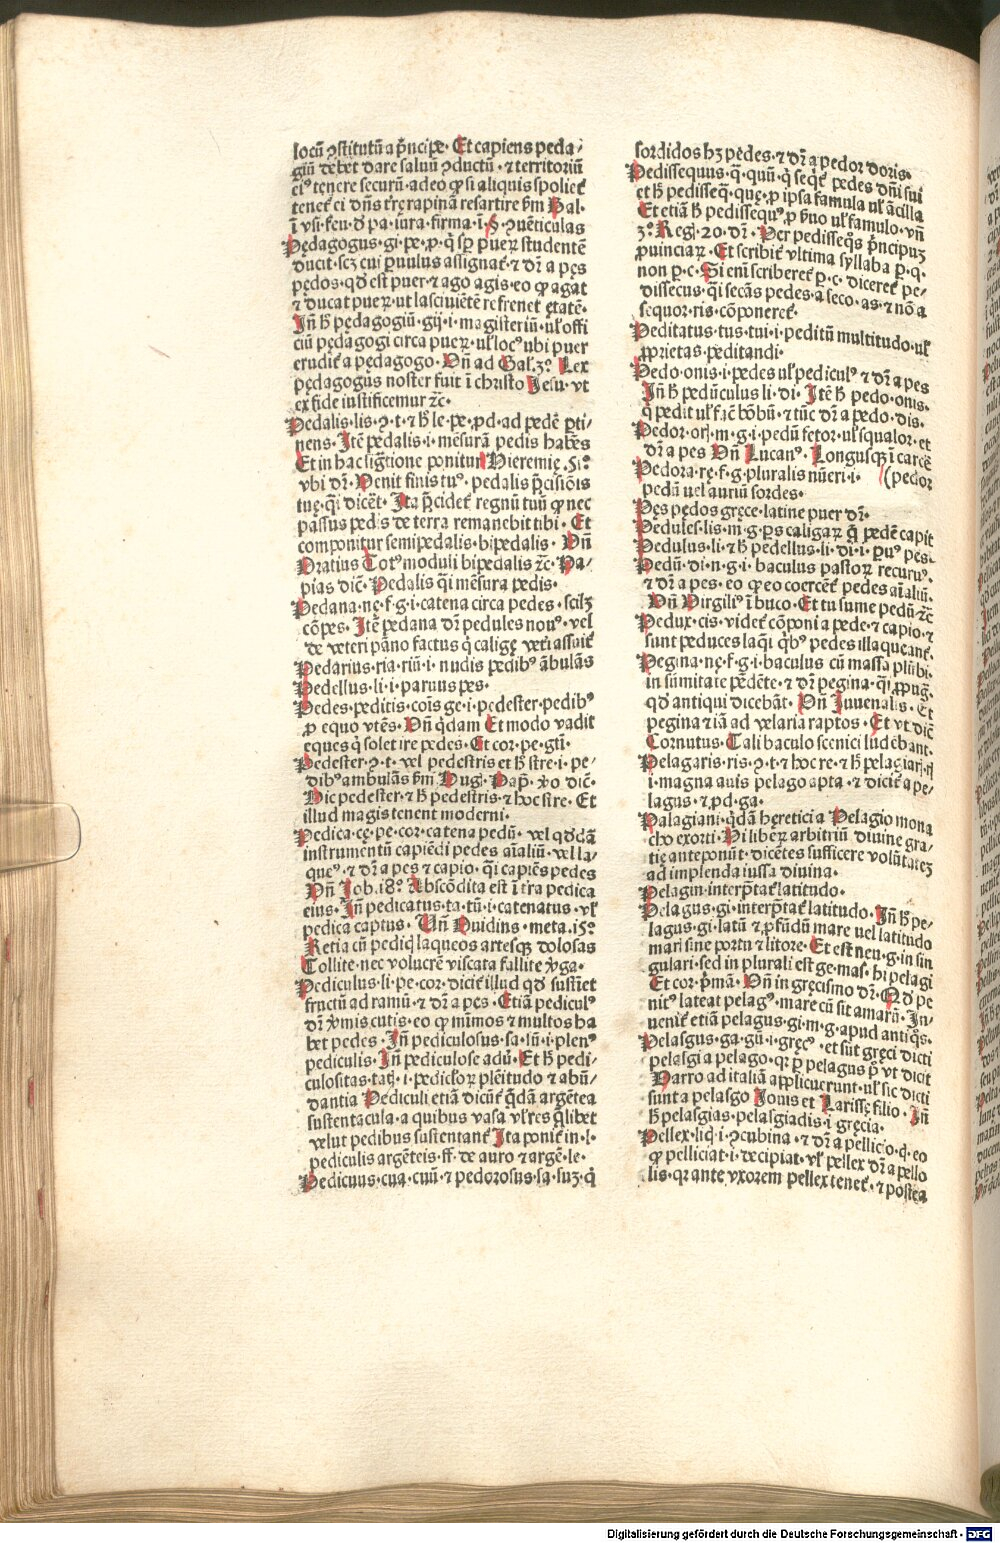 locũ ꝯstitutũ a pͥncipe· Et capiens peda⸗
giũ debet dare saluũ ꝯductũ· ⁊ territoriũ
eiꝰ tenere securũ· adeo ꝙ si aliquis spolieť
teneť ei dñs tr̃e rapinã resartire ẜm Bal·
ĩ vsi·feu·ð pa·iura·firma·ĩ·§·ꝯuẽticulas
Pędagogus·gi·pe·ꝓ·q̇ sp̱ pueꝝ studentẽ
ducit·scꝫ cui ꝑuulus assignať·⁊ dr̃ a pęs
pędos·qð est puer·⁊ ago agis·eo ꝙ agat
⁊ ducat pueꝝ·ut lasciuiẽtẽ refrenet ętatẽ·
Iñ h̃ pędagogiũ·gij·i·magisteriũ·uľ offi
ciũ pędagogi circa pueꝝ·uľ locꝰ ubi puer
erudiť a pędagogo· Vñ ad Gal·3ͦ· Lex
pędagogus noster fuit ĩ christo Iesu·vt
ex fide iustificemur ⁊c̃·
Pedalis·lis·ꝯ·t·⁊ h̃ le·pe·ꝓd·ad pedẽ ꝑti⸗
nens· Itẽ pedalis·i·mẽsurã pedis habẽs
Et in hac significatione ponitur Hieremię·51ͦ·
vbi dr̃· Venit finis tuꝰ·pedalis p̃cisiõis
tuę·q̃i dicẽt· Ita p̃cideť regnũ tuũ ꝙ nec
passus pedis de terra remanebit tibi· Et
componitur semipedalis·bipedalis· Vñ
Oratius Totꝰ moduli bipedalis ⁊c̃· Pa⸗
pias dic̃· Pedalis q̃i mẽsura pedis·
Pedana·nę·f·g·i·catena circa pedes·scilꝫ
cõpes· Itẽ pedana dr̃ pedules nouꝰ·vel
de veteri pãno factus q̇ calige veťi assuiť
Pedarius·ria·riũ·i·nudis pedibꝰ ãbulãs
Pedellus·li·i·paruus pes·
Pedes·peditis·cois ge·i·pedester·pedibꝰ
ꝓ equo vtẽs· Vñ q̇dam Et modo vadit
eques q̇ solet ire pedes· Et cor·pe·gti·
Pedester·ꝯ·t· vel pedestris et h̃ stre·i·pe⸗
dibꝰ ambulãs ẜm Hug· Pap̃·ꝟo dic̃·
Hic pedester·⁊ h̃ pedestris·⁊ hoc stre· Et
illud magis tenent moderni·
Pedica·cę·pe·cor·catena pedũ·vel qðdã
instrumentũ capiẽdi pedes aĩaliũ·vel la⸗
queꝰ·⁊ dr̃ a pes ⁊ capio·q̃i capiẽs pedes
Vñ Iob·18ͦ· Abscõdita est ĩ tr̃a pedica
eius· Iñ pedicatus·ta·tũ·i·catenatus·vľ
pedica captus· Vñ Ouidius·meta·15ͦ·
Retia cũ pediq̇ laqueos artesqꝫ dolosas
Tollite·nec volucrẽ viscata fallite v̊ga·
Pediculus·li·pe·cor·diciť illud qð sustĩet
fructũ ad ramũ·⁊ dr̃ a pes· Etiã pediculꝰ
dr̃ v̊mis cutis·eo ꝙ mĩmos ⁊ multos ha
bet pedes· Iñ pediculosus·sa·sũ·i·plenꝰ
pediculis· Iñ pediculose adũ· Et h̃ pedi⸗
culositas·tatꝭ·i·pedicloꝝ plẽitudo ⁊ abũ⸗
dantia Pediculi etiã dicũť q̃dã argẽtea
sustentacula·a quibus vasa vľ res q̃libet
velut pedibus sustentanť Ita poniť in·l·
pediculis·argẽteis·ff·de auro ⁊ argẽ·le·
Pedicuus·cua·cuũ·⁊ pedorosus·sa·suꝫ·q̇
sordidos hꝫ pẽdes·⁊ dr̃ a pedor doris·
Pedissequus·q̃·quũ·q̇ seqť pedes dñi sui
et h̃ pedisseq̃·quę·ꝓ ipsa famula uľ ãcilla
Et etiã h̃ pedissequꝰ·ꝓ ẜuo uľ famulo·vñ
3ͦ· Reg·20·dr̃· Per pedisseq̇s pͥncipuꝫ
ꝓuinciaꝝ· Et scribiť vltima syllaba ꝑ·q·
non ꝑ·c· Si eni scribereť ꝑ·c·dicereť pe⸗
dissecus·q̃i secãs pedes·a seco·as·⁊ nõ a
sequor·ris·cõponereť·
Peditatus·tus·tui·i·peditũ multitudo·uľ
ꝓprietas·peditandi·
Pedo·onis·i·pedes uľ pediculꝰ ⁊ dr̃ a pes
Iñ h̃ pedũculus li·di· Itẽ h̃ pedo·onis·
q̇ pedit uľ fac̃ bõbũ·⁊ tũc dr̃ a pedo·dis·
Pedor·orꝭ·m·g·i·pedũ fetor·uľ squalor·et
dr̃ a pes Vñ Lucanꝰ· Longusqꝫ ĩ carcẽ
Pedora·rę·f·g·pluralis nũeri·i· (pedor
pedũ uel auriũ sordes·
Pęs pędos gręce·latine puer dr̃·
Pedules·lis·m·g·ꝑs caligaꝝ q̃ pedẽ capit
Pedulus·li·⁊ h̃ pedellus·li·di·i·ꝑuꝰ pes·
Pedũ·di·n·g·i·baculus pastoꝝ recuruꝰ·
⁊ dr̃ a pes·eo ꝙ eo coerceť pedes aĩaliũ·
Vñ Virgiliꝰ ĩ buco· Et tu sume pedũ ⁊c̃
Pedux·cis·videť cõponi a pede·⁊ capio·⁊
sunt peduces laq̇i q̇bꝰ pedes illaqueanť·
Pegina·nę·f·g·i·baculus cũ massa plũbi·
in sũmitate pẽdẽte·⁊ dr̃ pegina·q̃i ꝓpug̃·
qð antiqui dicebãt· Vñ Iuuenalis· Et
pegina ⁊ iã ad velaria raptos· Et vt dic̃
Cornutus· Tali baculo scenici ludebant·
Pelagaris·ris·ꝯ·t·⁊ hoc re·⁊ h̃ pelagiarꝭ·rꝭ
i·magna auis pelago apta·⁊ diciť a pe⸗
lagus·⁊ ꝓd·ga·
Palagiani·q̇dã heretici a Pelagio mona
cho exorti· Hi liberꝝ arbitriũ diuine gra⸗
tię anteponũt·dicẽtes sufficere volũtatẽ
ad implenda iussa diuina·
Pelagin·interp̃tať latitudo·
Pelagus·gi·interp̃tať latitudo· Iñ h̃ pe⸗
lagus·gi·latũ ⁊ ꝓfũdũ mare uel latitudo
maris sine portu ⁊ litore· Et est neu·g·in sin
gulari·sed in plurali est ge·mas·hi pelagi
Et cor·pͥmã· Vñ in gręcismo dr̃· Qð pe
nitꝰ lateat pelagꝰ·mare cũ sit amarũ· In⸗
ueniť etiã pelagus·gi·m·g·apud antiq̇s·
Pelasgus·ga·gũ·i·gręcꝰ·et sũt gręci dicti
pelasgi a pelago·qꝛ ꝑ pelagus pͥ vt dicit
Varro ad italiã applicuerunt·uľ sic dicti
sunt a pelasgo Iouis et Larissę filio· Iñ
h̃ pelasgias·pelasgiadis·i·gręcia·
Pellex·licꝭ·i·ꝯcubina·⁊ dr̃ a pellicio·q̇·eo
ꝙ pelliciat·i·decipiat·vľ pellex dr̃ a pello
lis·qꝛ ante vxorem pellex teneť·⁊ postea
Digitalisierung gefördert durch die Deutsche Forschungsgemeinschaft - DFG